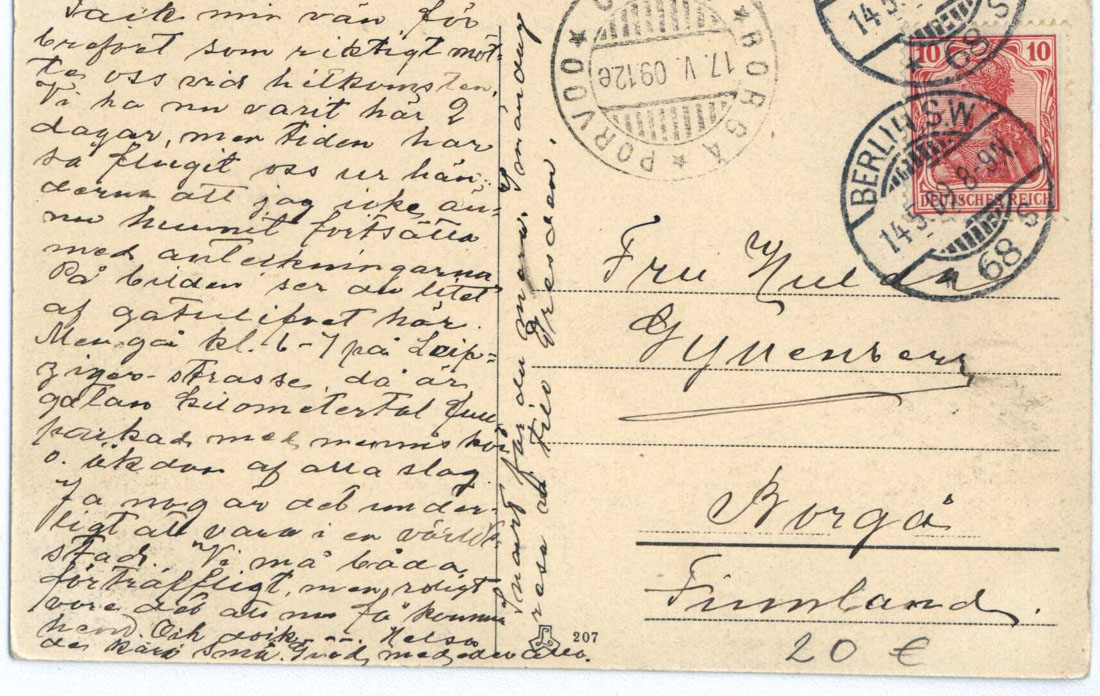 Tack min vän för
brefvet som riktigt möt-
te oss vid hitkomsten.
Vi ha nu varit här 2
dagar, men tiden har
så flugit oss ur hän-
derna att jag icke än-
nu hunnit fortsätta
med anteckningarna
På bilden ser du litet
af gatulifvet här.
Men gå kl. 6-7 på Leip-
ziger-strasse, då är
gatan kilometertal
packad med människor
o. åkdon af alla slag
Ja nog är det under-
ligt att vara i en världs-
stad. Vi må båda
förträffligt, men roligt
vore det att nu få komma
hem. Och Hälsa
de kära små. med eder alla.
Snart får du mera. I måndag
resa vi till Dresden.
PORVOO ★ BORGÅ ★
17.V.09.12e
14.5.
★ 68 S
10 10
DEUTSCHES REICH
BERLIN S.W.
14.5.09.8-9N
★ 68 S
Fru Hulda
Gyllenberg
Borgå
Finnland.
207
20 €